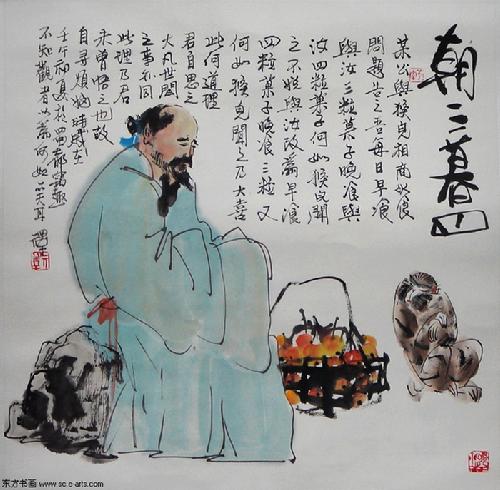 朝三暮四
某公與猴兒相商飲食
問題告之吾每日早飡
與汝三粒菓子晚飡與
汝四粒菓子何如猴兒聞
之不悅與汝改為早飡
四粒菓子晚飡三粒又
何如猴兒聞之乃大喜
此何道理
君自思之
大凡世間
之事亦同
此理乃君
未曾悟之也故
自尋煩惱時
壬午初夏於蜀
不知觀者以為何如
东方书画 www.sc.e-arts.com